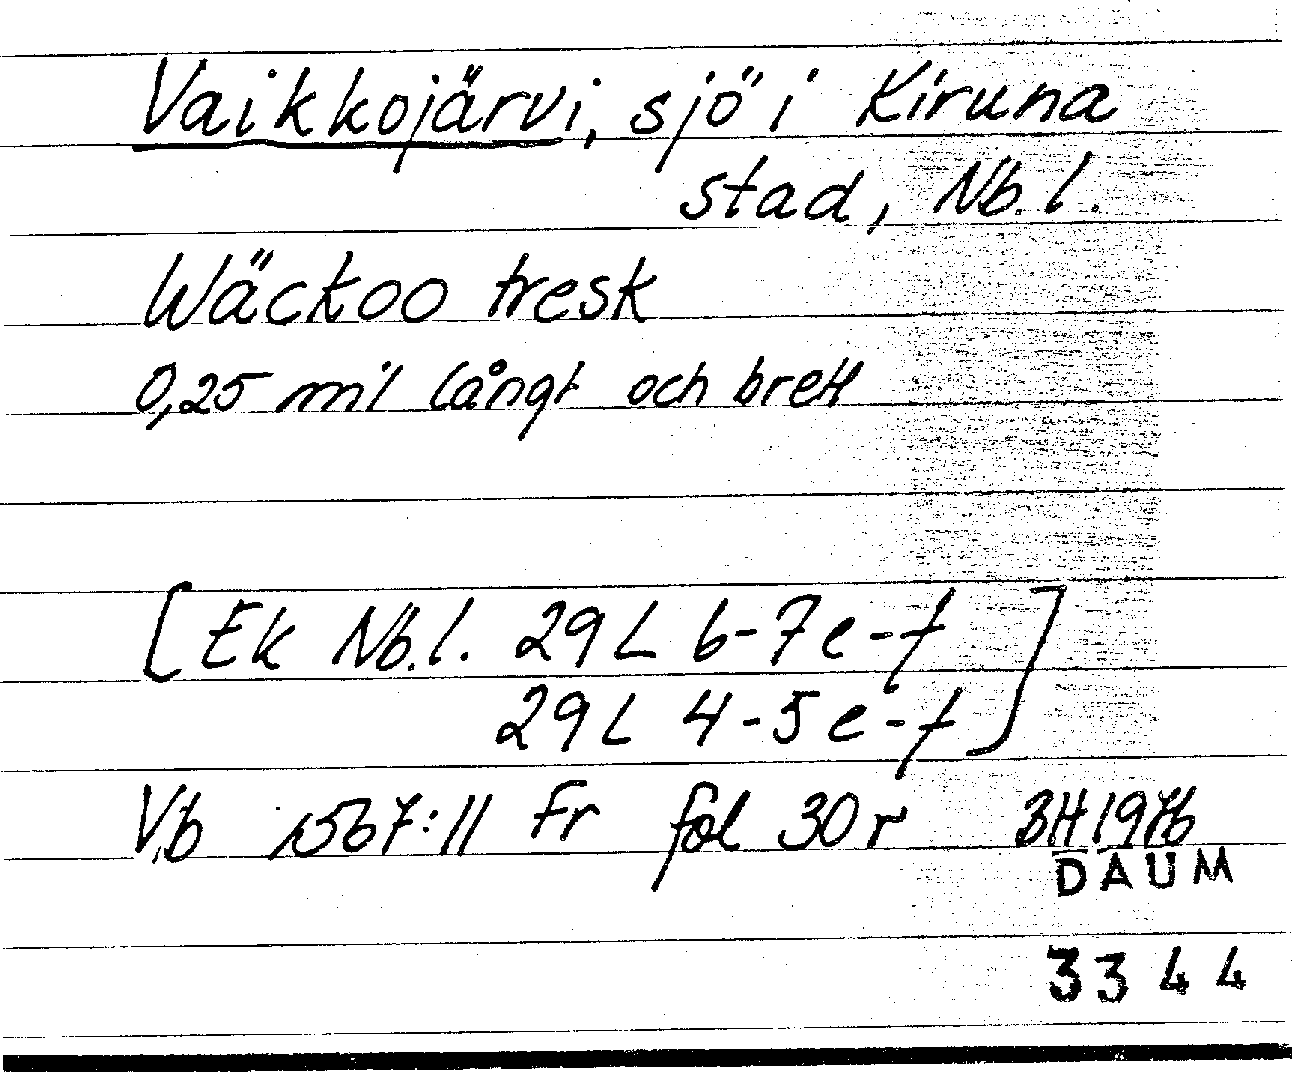 Vaikkojärvi, sjö i Kiruna
stad, Nb. l.
Wäckoo tresk
0,25 mil långt och brett
[Ek Nb.l. 29 L 6-7 e-f
29 L 4-5 e-f]
Vb 1567:11 Fr fol 30 r BH 1976
DAUM
3344